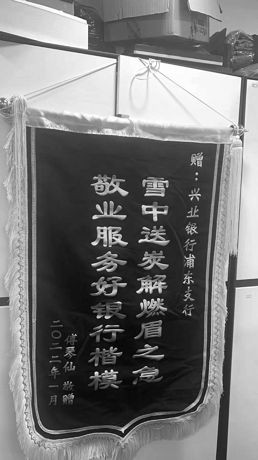 赠：兴业银行浦东支行
雪中送炭解燃眉之急
敬业服务好银行楷模
傅琴仙 敬赠
二〇一二年一月